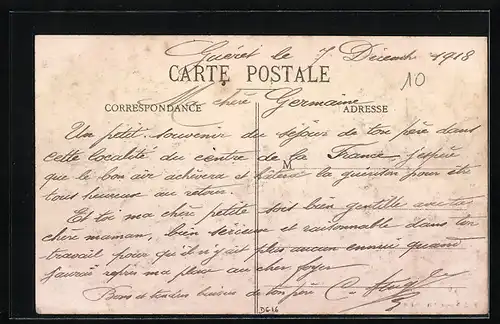 Guéret le 7 Décembre 1918
CARTE POSTALE
10
CORRESPONDANCE
ADRESSE
M
Ma chère Germaine
Un petit souvenir du séjour de ton père dans
cette localité du centre de la France j'espère
que le bon air achèvera et hâtera la guérison pour être
tous heureux au retour.
Et toi ma chère petite sois bien gentille avec ta
chère maman, bien sérieuse et raisonnable dans ton
travail pour qu'il n'y ait plus aucun ennuie quand
j'aurai repris ma place au cher foyer
Bons et tendres baisers de ton père C.
D616